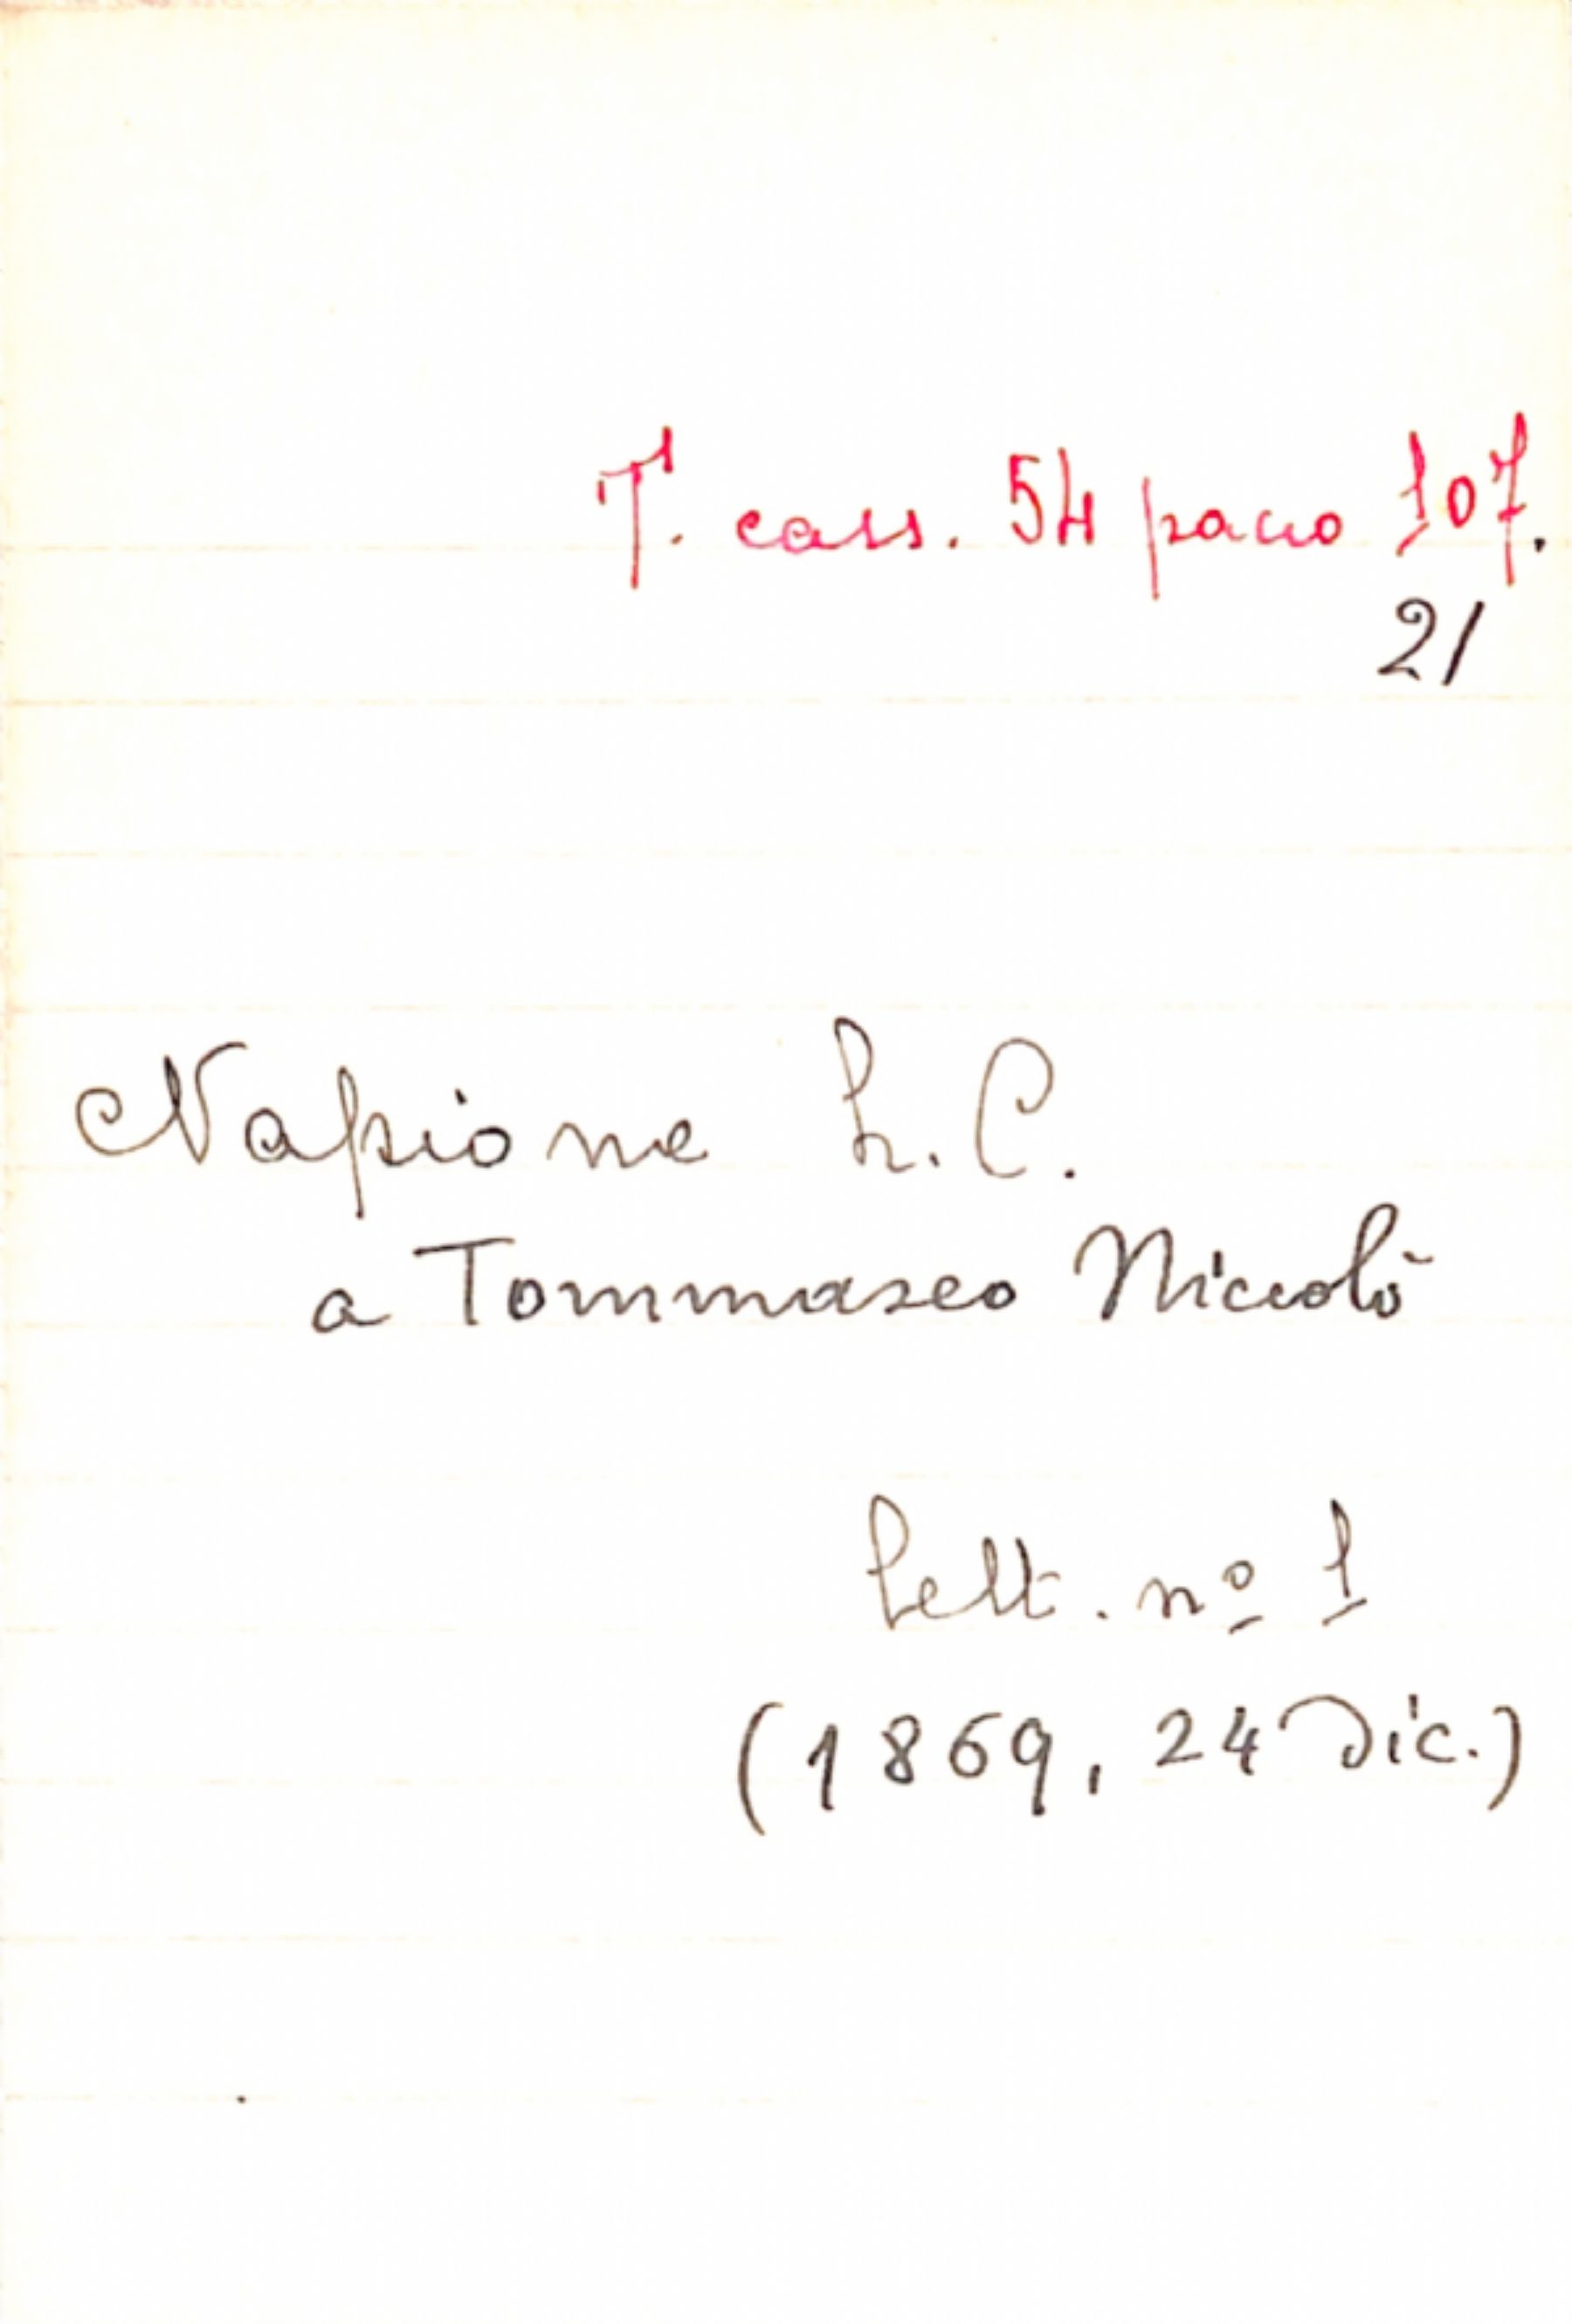 T. cass. 54 pacco 107.
21
Napione L. C.
a Tommaseo Niccolò
Lett. nº 1
(1869, 24 Dic.)